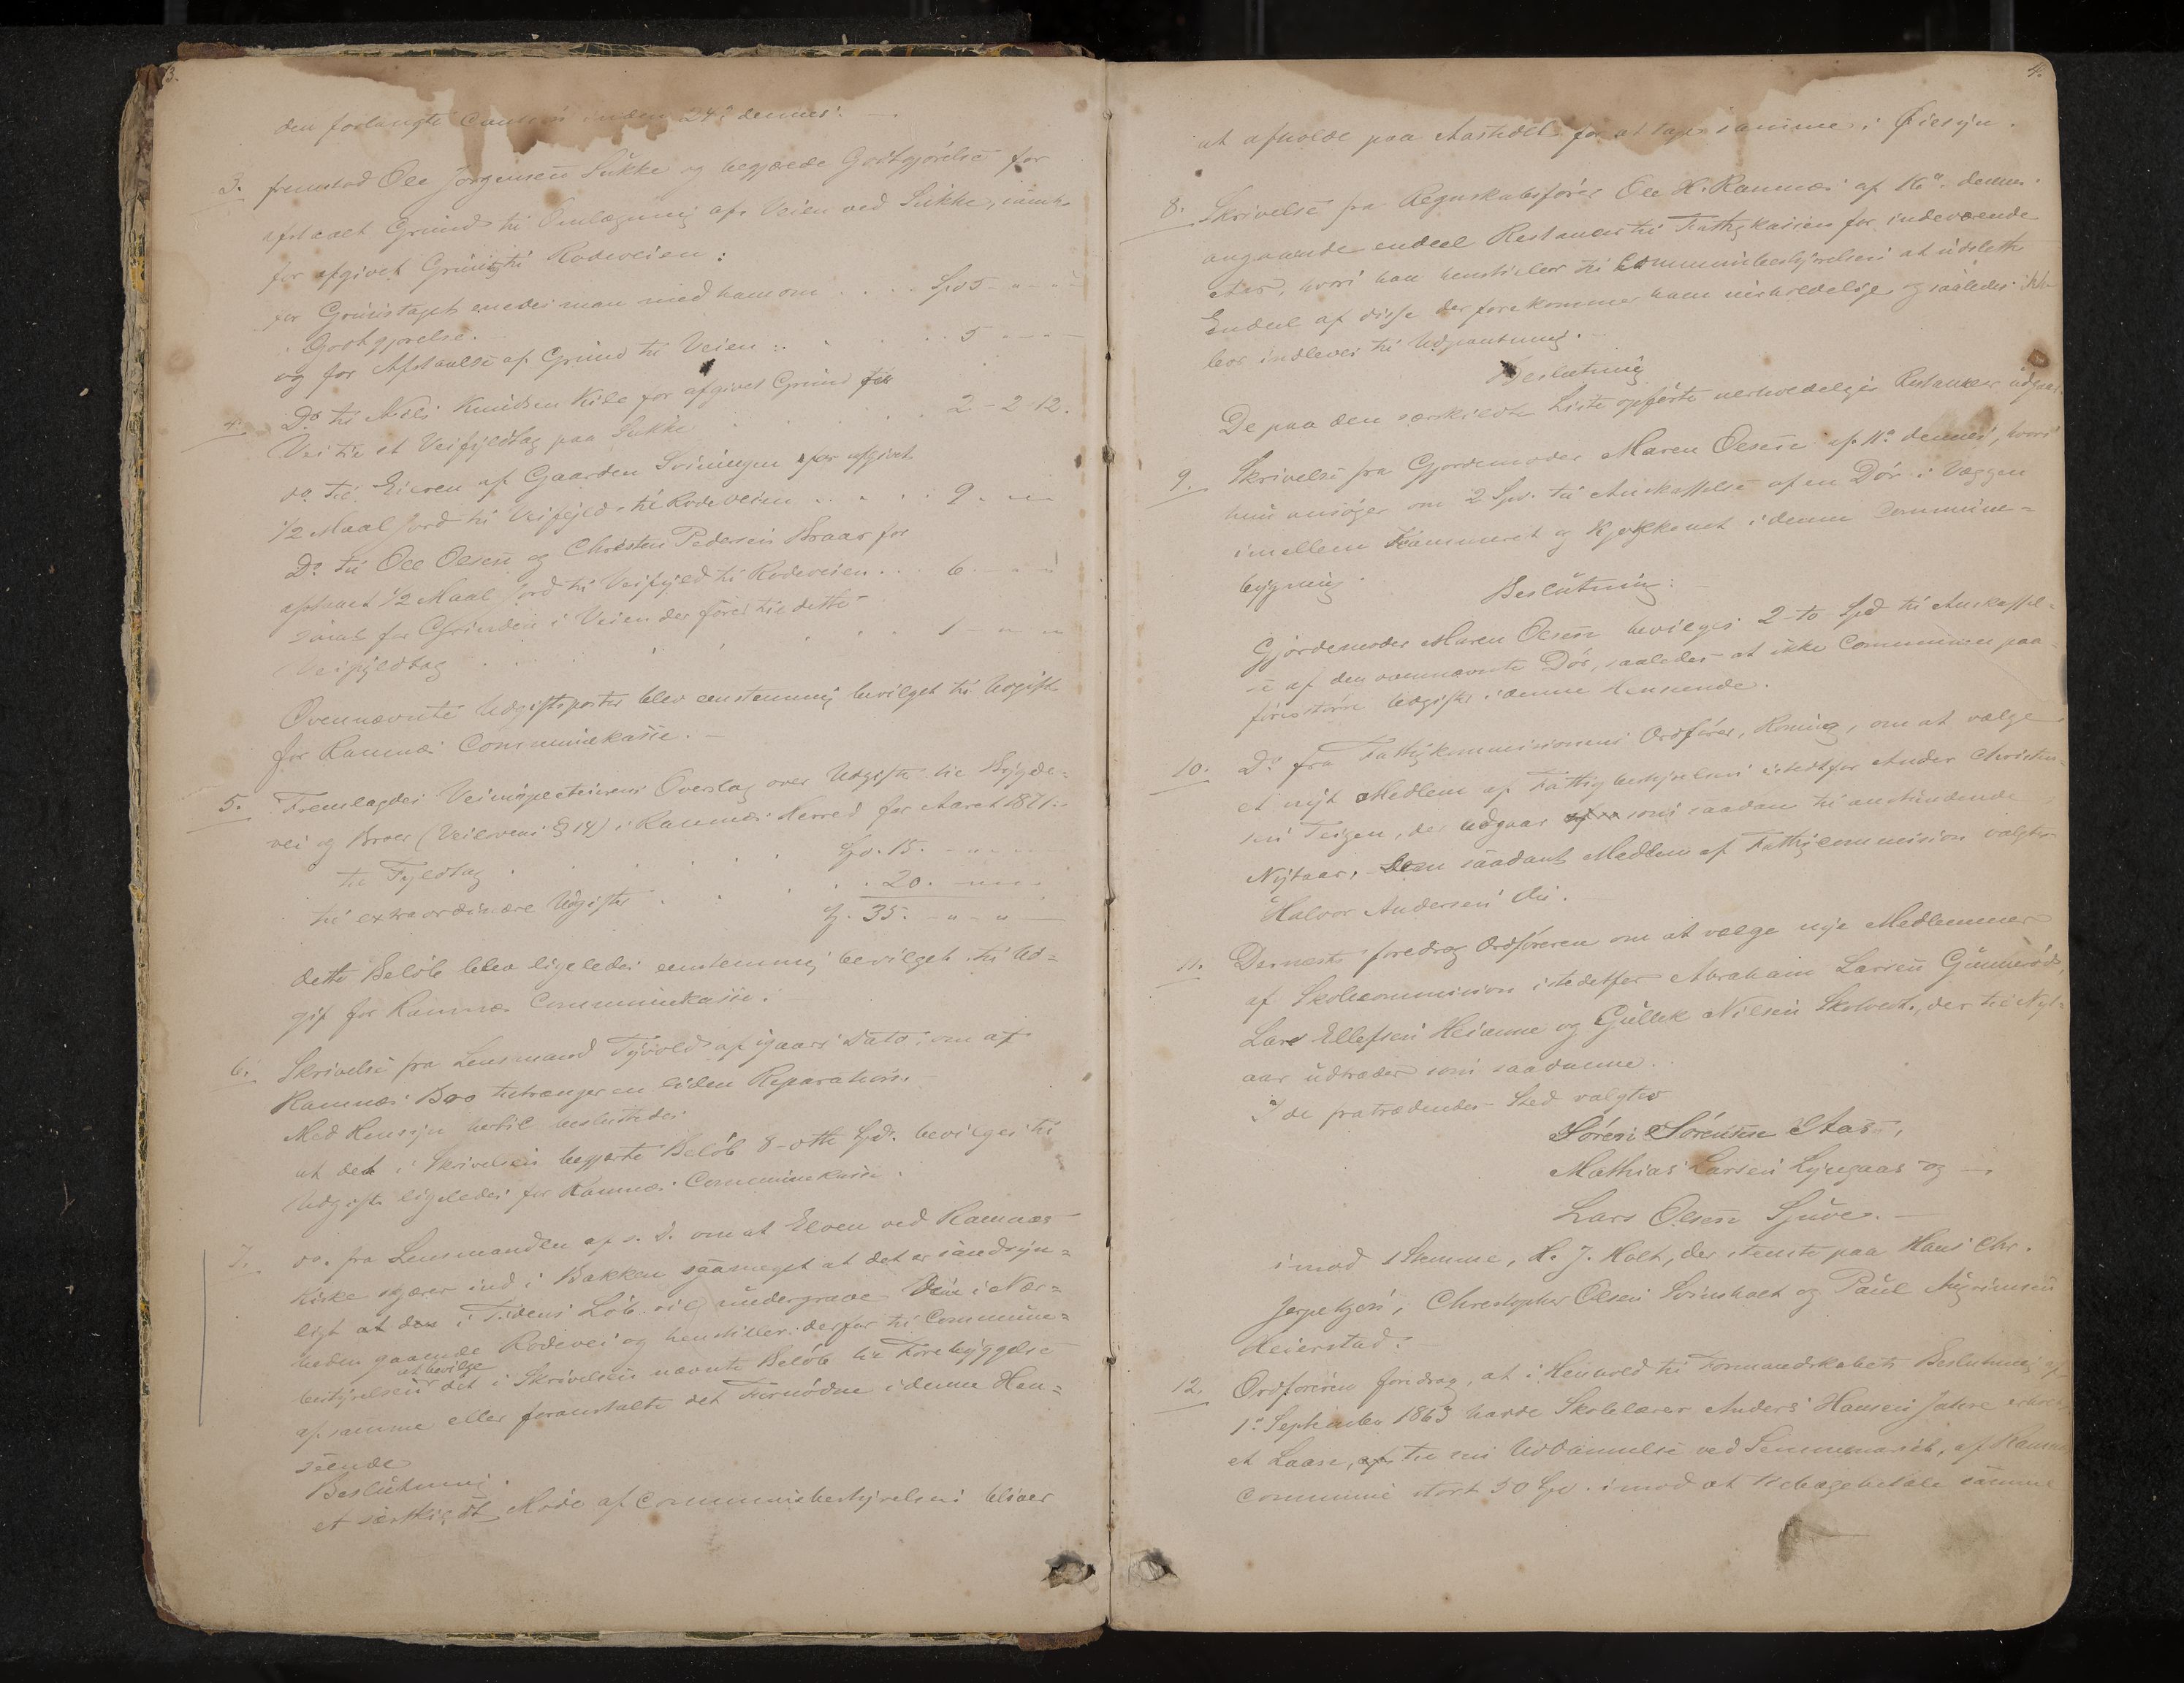 3.
den forlangte Caution inden 24de dennes. —
3. fremstod Ole Jørgensen Sukke og begjærede Godtgjørelse for
afstaaet Grund til Omlægning af Veien ved Sukke, samt
for afgivet Gruus til Rodeveien:
for Gruustaget enedes man med ham om . . . . Spd 5 - " - "
Godtgjørelse.
og for Afstaaelse af Grund til Veien : . . . . . 5 - - -
4. Do til Niels Knudsen Kile for afgivet Grund til
Vei til et Veifyldtag paa Sukke . . . . . . . 2 - 2 12.
do til Eieren af Gaarden Sviningen for afgivet
1/2 Maal Jord til Veifyld til Rodeveien . . . . . 9. - " -
Do til Ole Olsen og Christen Pedersen Braar for
afstaaet 1/2 Maal Jord til Veifyld til Rodeveien . . . 6. - " - "
samt for Grinden i Veien der fører til dette
Veifyldtag . . . . . . . 1 - " - "
Ovennævnte Udgiftsposter blev eenstemmig bevilget til Udgift
for Ramnæs Communekasse. —
5. Fremlagdes Veiinspecteurens Overslag over Udgifter til Bygde=
vei og Broer (Veilovens § 14) i Ramnæs Herred for Aaret 1871.
til Fyldtag . . . . . . Spd. 15. - " - "
til extraordinære Udgifter . . . . . 20. - " - "
Sp. 35. - " - " -
dette Beløb blev ligeledes eenstemmig bevilget til Ud=
gift for Ramnæs Communekasse.
6. Skrivelse fra Lensmand Tyvold af igaars Dato, om at
Ramnæs Bro tiltrænger en liden Reparation.
Med Hensyn hertil besluttedes
at det i Skrivelsen begjærte Beløb 8 - otte Spd. bevilges til
Udgift ligeledes for Ramnæs Communekasse.
7. do. fra Lensmanden af s. D. om at Elven ved Ramnæs
Kirke skjærer ind i Bakken saameget at det er sandsyn=
ligt at den i Tidens Løb vil undergrave den i Nær=
heden gaaende Rodevei og henstiller derfor til Commune=
bestyrelsen at bevilge det i Skrivelsen nævnte Beløb til Forebyggelse
af samme eller foranstalte det Fornødne i denne Hen=
seende
Beslutning.
et særskildt Møde af Communebestyrelsen bliver
4.
at afholde paa Aastedet for at tage samme i Øiesyn.
8. Skrivelse fra Regnskabsfører Ole H. Ramnæs af 16de dennes
angaaende endeel Restancer til Fattigkassen for indeværende
Aar, hvori han henstiller til Communebestyrelsen at udslette
Endeel af disse der forekommer ham uerholdelige og saaledes ikke
bør indleves til Udpantning. —
Beslutning
De paa den særskildte Liste opførte uerholdelige Restancer udgaar.
9. Skrivelse fra Gjordemoder Maren Olsen af 11te dennes, hvori
hun ansøger om 2 Spd. til Anskaffelse af en Dør i Væggen
imellem Kammeret og Kjøkkenet i denne Commune=
bygning.
Beslutning:
Gjordemoder Maren Olsen bevilges 2 - to Spd til Anskaffel=
se af den ovennævnte Dør, saaledes at ikke Communen paa=
føres større Udgifter i denne Henseende.
10. Do fra Fattigkommissionens Ordfører, Koning, om at vælge
et nyt Medlem af Fattigbestyrelsen istedetfor Anders Christen=
sen Teigen, der udgaar som saadan til anstundende
Nytaar. Som saadant Medlem af Fattigcommission valgtes
Halvor Andersen Vii.
11. Dernæst foredrog Ordføreren om at vælge nye Medlemmer
af Skolecommission istedetfor Abraham Larsen Gunnerød,
Lars Ellefsen Heianne og Gullek Nilsen Skolvedt, der til Nyt=
aar udtræder som saadanne.
I de fratrædendes Sted valgtes
Søren Sørensen Aas,
Mathias Larsen Lyngaas og —
Lars Olsen Sjuve. —
imod 1 Stemme, H. J. Holt, der stemte paa Hans Chr.
Jerpekjøn, Christopher Olsen Svinsholt og Paul Asgrimsen
Heierstad.
12. Ordføreren foredrog, at i Henhold til Formandskabets Beslutning af
1ste September 1863 havde Skolelærer Anders Hansen Jahre erholdt
et Laan, til sin Uddannelse ved Semminariet, af Ramnæs
Commune stort 50 Spd. imod at tilbagebetale samme